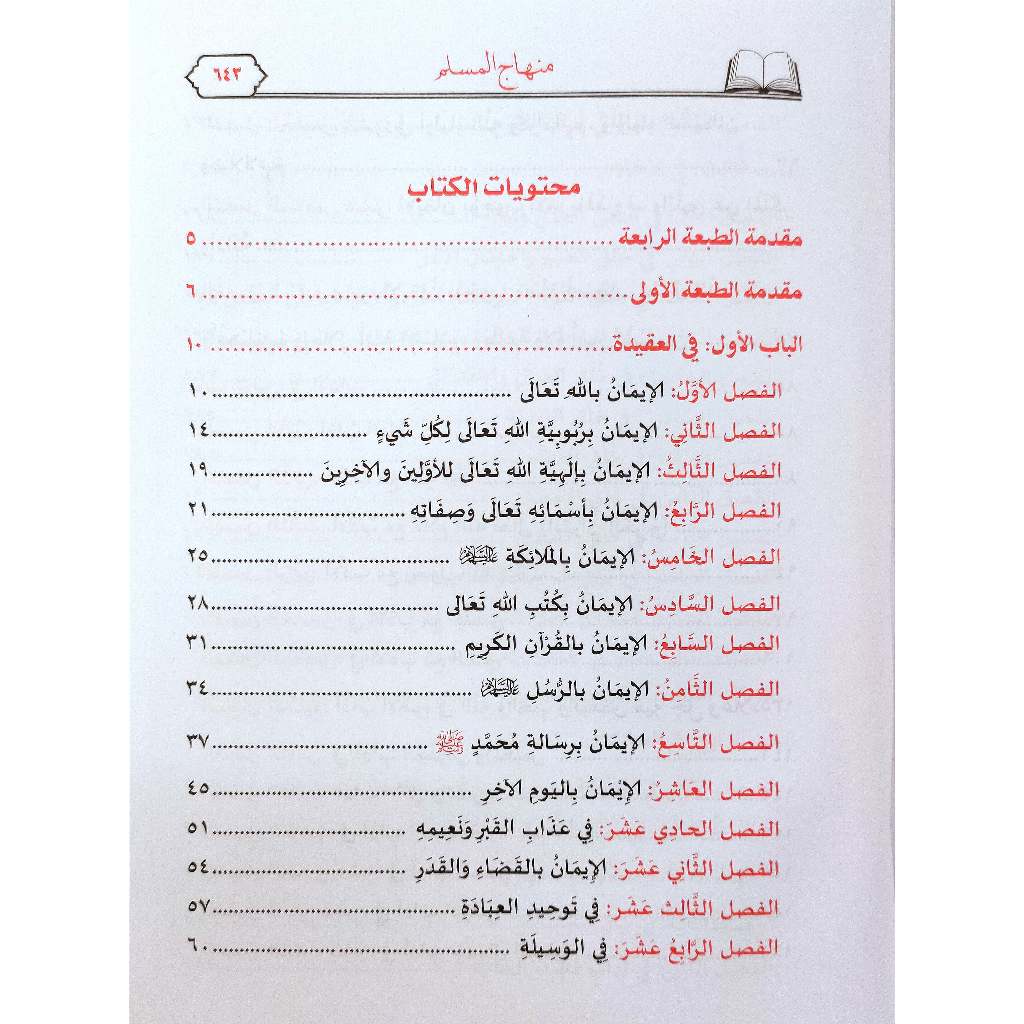 منهاج المسلم
٦٤٣
محتويات الكتاب
مقدمة الطبعة الرابعة ................ ٥
مقدمة الطبعة الأولى ................ ٦
الباب الأول: في العقيدة ................ ١٠
الفصل الأَوَّلُ: الإيمَانُ بِاللهِ تَعَالَى ................ ١٠
الفصل الثَّانِي: الإيمَانُ بِرُبُوبِيَّةِ اللهِ تَعَالَى لِكُلِّ شَيْءٍ ................ ١٤
الفصل الثَّالِثُ: الإيمَانُ بِإلَهِيَّةِ اللهِ تَعَالَى للأَوَّلِينَ والآخِرِينَ ................ ١٩
الفصل الرَّابِعُ: الإيمَانُ بِأسْمَائِهِ تَعَالَى وَصِفَاتِهِ ................ ٢١
الفصل الخَامِسُ: الإيمَانُ بِالمَلَائِكَةِ عليهم السلام ................ ٢٥
الفصل السَّادِسُ: الإيمَانُ بِكُتُبِ اللهِ تَعَالى ................ ٢٨
الفصل السَّابِعُ: الإيمَانُ بالقُرْآنِ الكَرِيمِ ................ ٣١
الفصل الثَّامِنُ: الإيمَانُ بالرُّسُلِ عليهم السلام ................ ٣٤
الفصل التَّاسِعُ: الإيمَانُ بِرِسَالةِ مُحَمَّدٍ ﷺ ................ ٣٧
الفصل العَاشِرُ: الإيْمَانُ بِاليَومِ الآخِرِ ................ ٤٥
الفصل الحَادِي عَشَرَ: فِي عَذَابِ القَبْرِ وَنَعِيمِهِ ................ ٥١
الفصل الثَّانِي عَشَرَ: الإِيمَانُ بالقَضَاءِ وَالقَدَرِ ................ ٥٤
الفصل الثَّالِث عَشَر: فِي تَوحِيدِ العِبَادَةِ ................ ٥٧
الفصل الرَّابِعُ عَشَرَ: فِي الوَسِيلَةِ ................ ٦٠